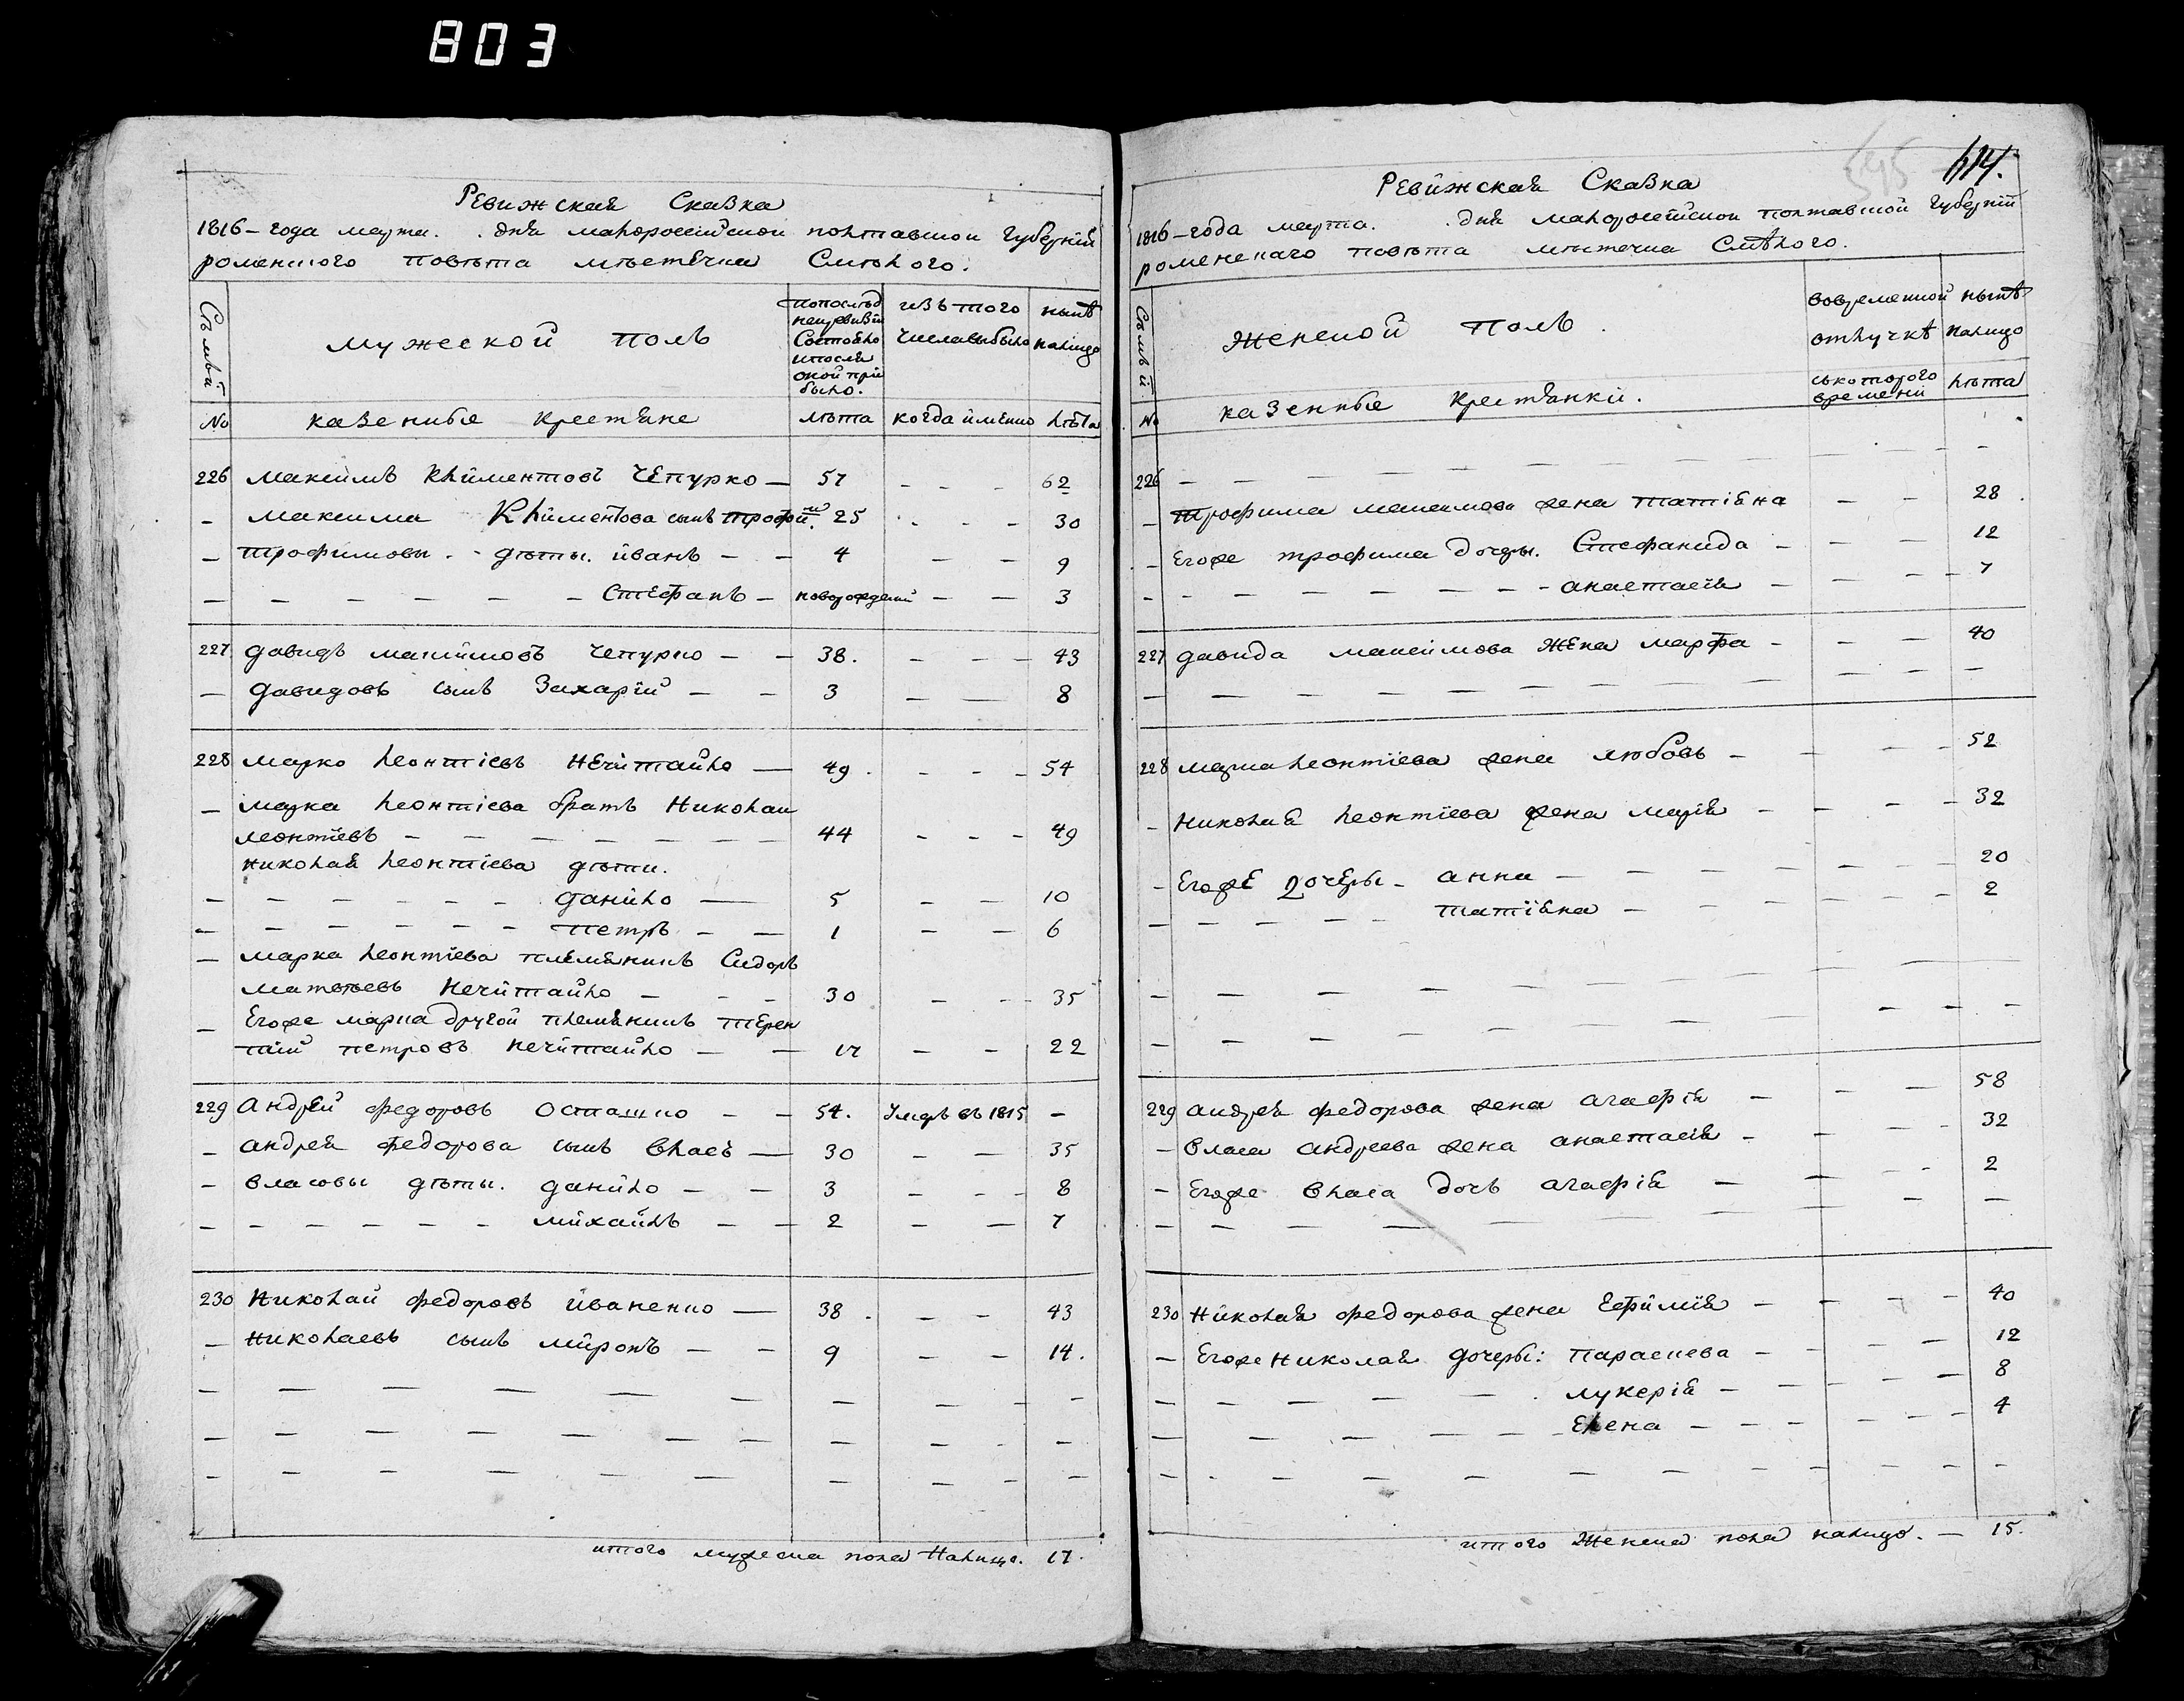 803
Ревижская Сказка
1816 – года марта . . дня малороссийской полтавской Губернїи
роменского повѣта мѣстечка Смѣлого.
Съмьи
мужеской полъ
попослѣд
неиревизїи
Состояло
ипосля
оной при
было.
изътого
числавыбыло
нынѣ
налицо
№
казенные крестяне
лѣта
когда именно
лѣта
226 максимъ Климентовъ Чепурко — 57 - - - 62
- максима Климентова сынъ трофи.м 25 - - - 30
- трофимовы - дѣты. иванъ - - 4 - - 9
- - - - - - Стефанъ - новорожденй - - 3
227 давидъ максимовъ чепурко - - 38. - - - 43
- давидовъ сынъ Захарїй - - 3 - - 8
228 марко леонтїевъ нечитайло — 49. - - - 54
- марка леонтїева братъ николай
леонтїевъ - - - - - - 44 - - - 49
николая леонтїева дѣти.
- - - - - - - данило — 5 - - 10
- - - - - - - петръ - - 1 - - 6
- марка леонтїева племяникъ Сидоръ
матвѣевъ нечитайло - - - 30 - - - 35
- Егоже марка другой племяникъ терен
тїий петровъ нечитайло - - 17 - - 22
229 Андрей федоровъ осташко - - 54. Умеръ въ 1815 -
- андрея федорова сынъ власъ — 30 - - 35
- власовы дѣты. данило - - 3 - - - 8
- - - - - - - михайлъ - - 2 - - 7
230 николай федоровъ иваненко — 38. - - 43
- николаевъ сынъ миронъ - - 9 - - 14.
итого мужеска пола налицо. 17.
595 614.
Ревижская Сказка
1816 – года марта. . дня малоросийской полтавской Губернїи
роменскаго повѣта мѣстечка Смѣлого.
Съмьй
женской полъ.
вовременной
отлучкѣ
нынѣ
налицо
№
казенные крестянки.
скоторого
времени
лѣта
226 - - - - - - - - -
- трофима максимова жена татїяна - - 28.
- Егоже трофима дочеры. Стефанида - - - 12
- - - - - - - - анастасїя - - - - 7
227 давида максимова жена марфа - - - 40
- - - - - - - - - - - -
228 марка леонтїева жена любовь - - - - 52
- николая леонтїева жена марїя - - - - 32
- Егоже дочеры - анна - - - - - 20
- - - - - татїяна - - - - - 2
229 андрея федорова жена агафїя - - - 58
- власа андреева жена анастасїя - - - - 32
- Егоже власа дочь агафїя - - - - 2
230 николая федорова жена Ефимїя - - - - 40
- Егоже николая дочеры: параскева - - - - 12
- - - - - . лукерїя - - - - - 8
- - - - - - Елена - - - - - - 4
итого женска пола налицо. — 15.